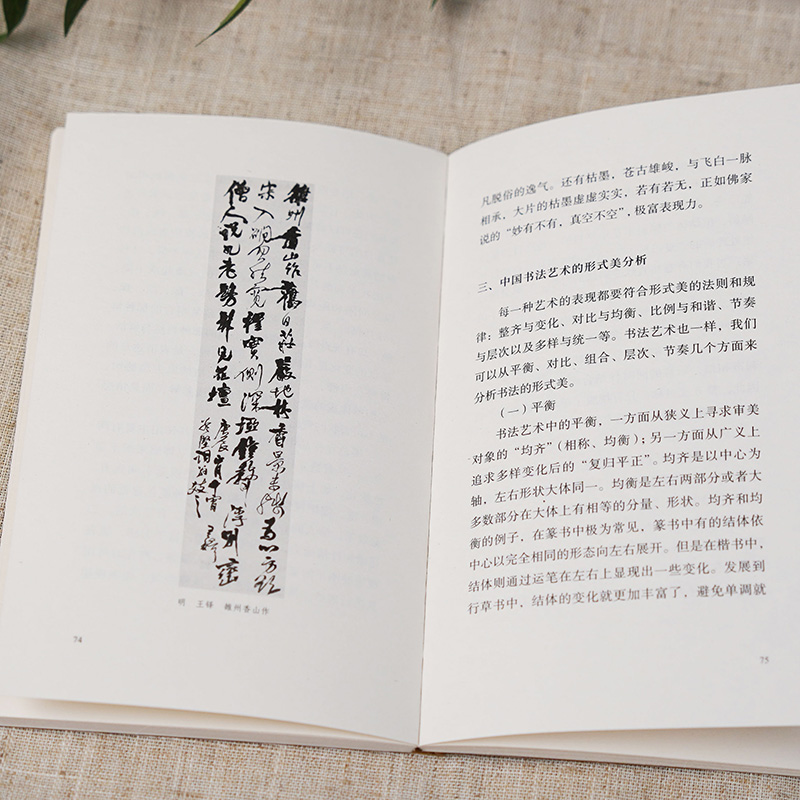 雒州香山作舊日莊嚴地
明 王铎 雒州香山作
74
凡脱俗的逸气。还有枯墨，苍古雄峻，与飞白一脉
相承，大片的枯墨虚虚实实，若有若无，正如佛家
说的“妙有不有，真空不空”，极富表现力。
三、中国书法艺术的形式美分析
每一种艺术的表现都要符合形式美的法则和规
律：整齐与变化、对比与均衡、比例与和谐、节奏
与层次以及多样与统一等。书法艺术也一样，我们
可以从平衡、对比、组合、层次、节奏几个方面来
分析书法的形式美。
（一）平衡
书法艺术中的平衡，一方面从狭义上寻求审美
对象的“均齐”（相称、均衡）；另一方面从广义上
追求多样变化后的“复归平正”。均齐是以中心为
轴，左右形状大体同一。均衡是左右两部分或者大
多数部分在大体上有相等的分量、形状。均齐和均
衡的例子，在篆书中极为常见，篆书中有的结体依
中心以完全相同的形态向左右展开。但是在楷书中，
结体则通过运笔在左右上显现出一些变化。发展到
行草书中，结体的变化就更加丰富了，避免单调就
75